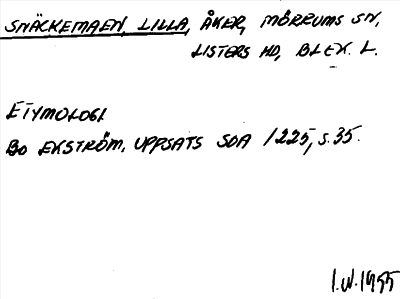 SNÄCKEMAEN, LILLA, ÅKER, MÖRRUMS SN,
LISTERS HD, BLEK. L.
ETYMOLOGI
BO EKSTRÖM, UPPSATS SOA 1225, S. 35.
I.W. 1955